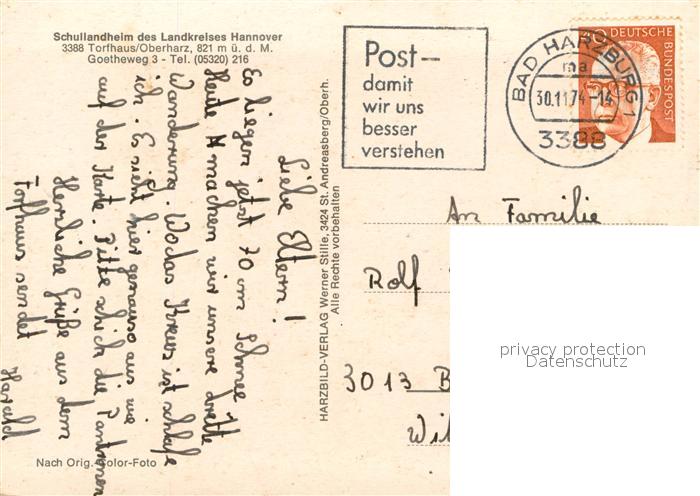 Schullandheim des Landkreises Hannover
3388 Torfhaus/Oberharz, 821 m ü. d. M.
Goetheweg 3 - Tel. (05320) 216
Liebe Eltern!
Es liegen jetzt 70 cm Schnee
Heute machen wir unsere dritte
Wanderung. Wo das Kreuz ist schlafe
ich. Es sieht hier genauso aus wie
auf der Karte. Bitte schick die
Herzliche Grüße aus dem
Torfhaus sendet
Harald
Nach Orig. Color-Foto
HARZBILD-VERLAG Werner Stille, 3424 St. Andreasberg/Oberh.
Alle Rechte vorbehalten
Post–
damit
wir uns
besser
verstehen
BAD HARZBURG 1
ma
30.11.74-14
3388
DEUTSCHE
BUNDESPOST
An Familie
Rolf
3013 B
Wil
privacy protection
Datenschutz